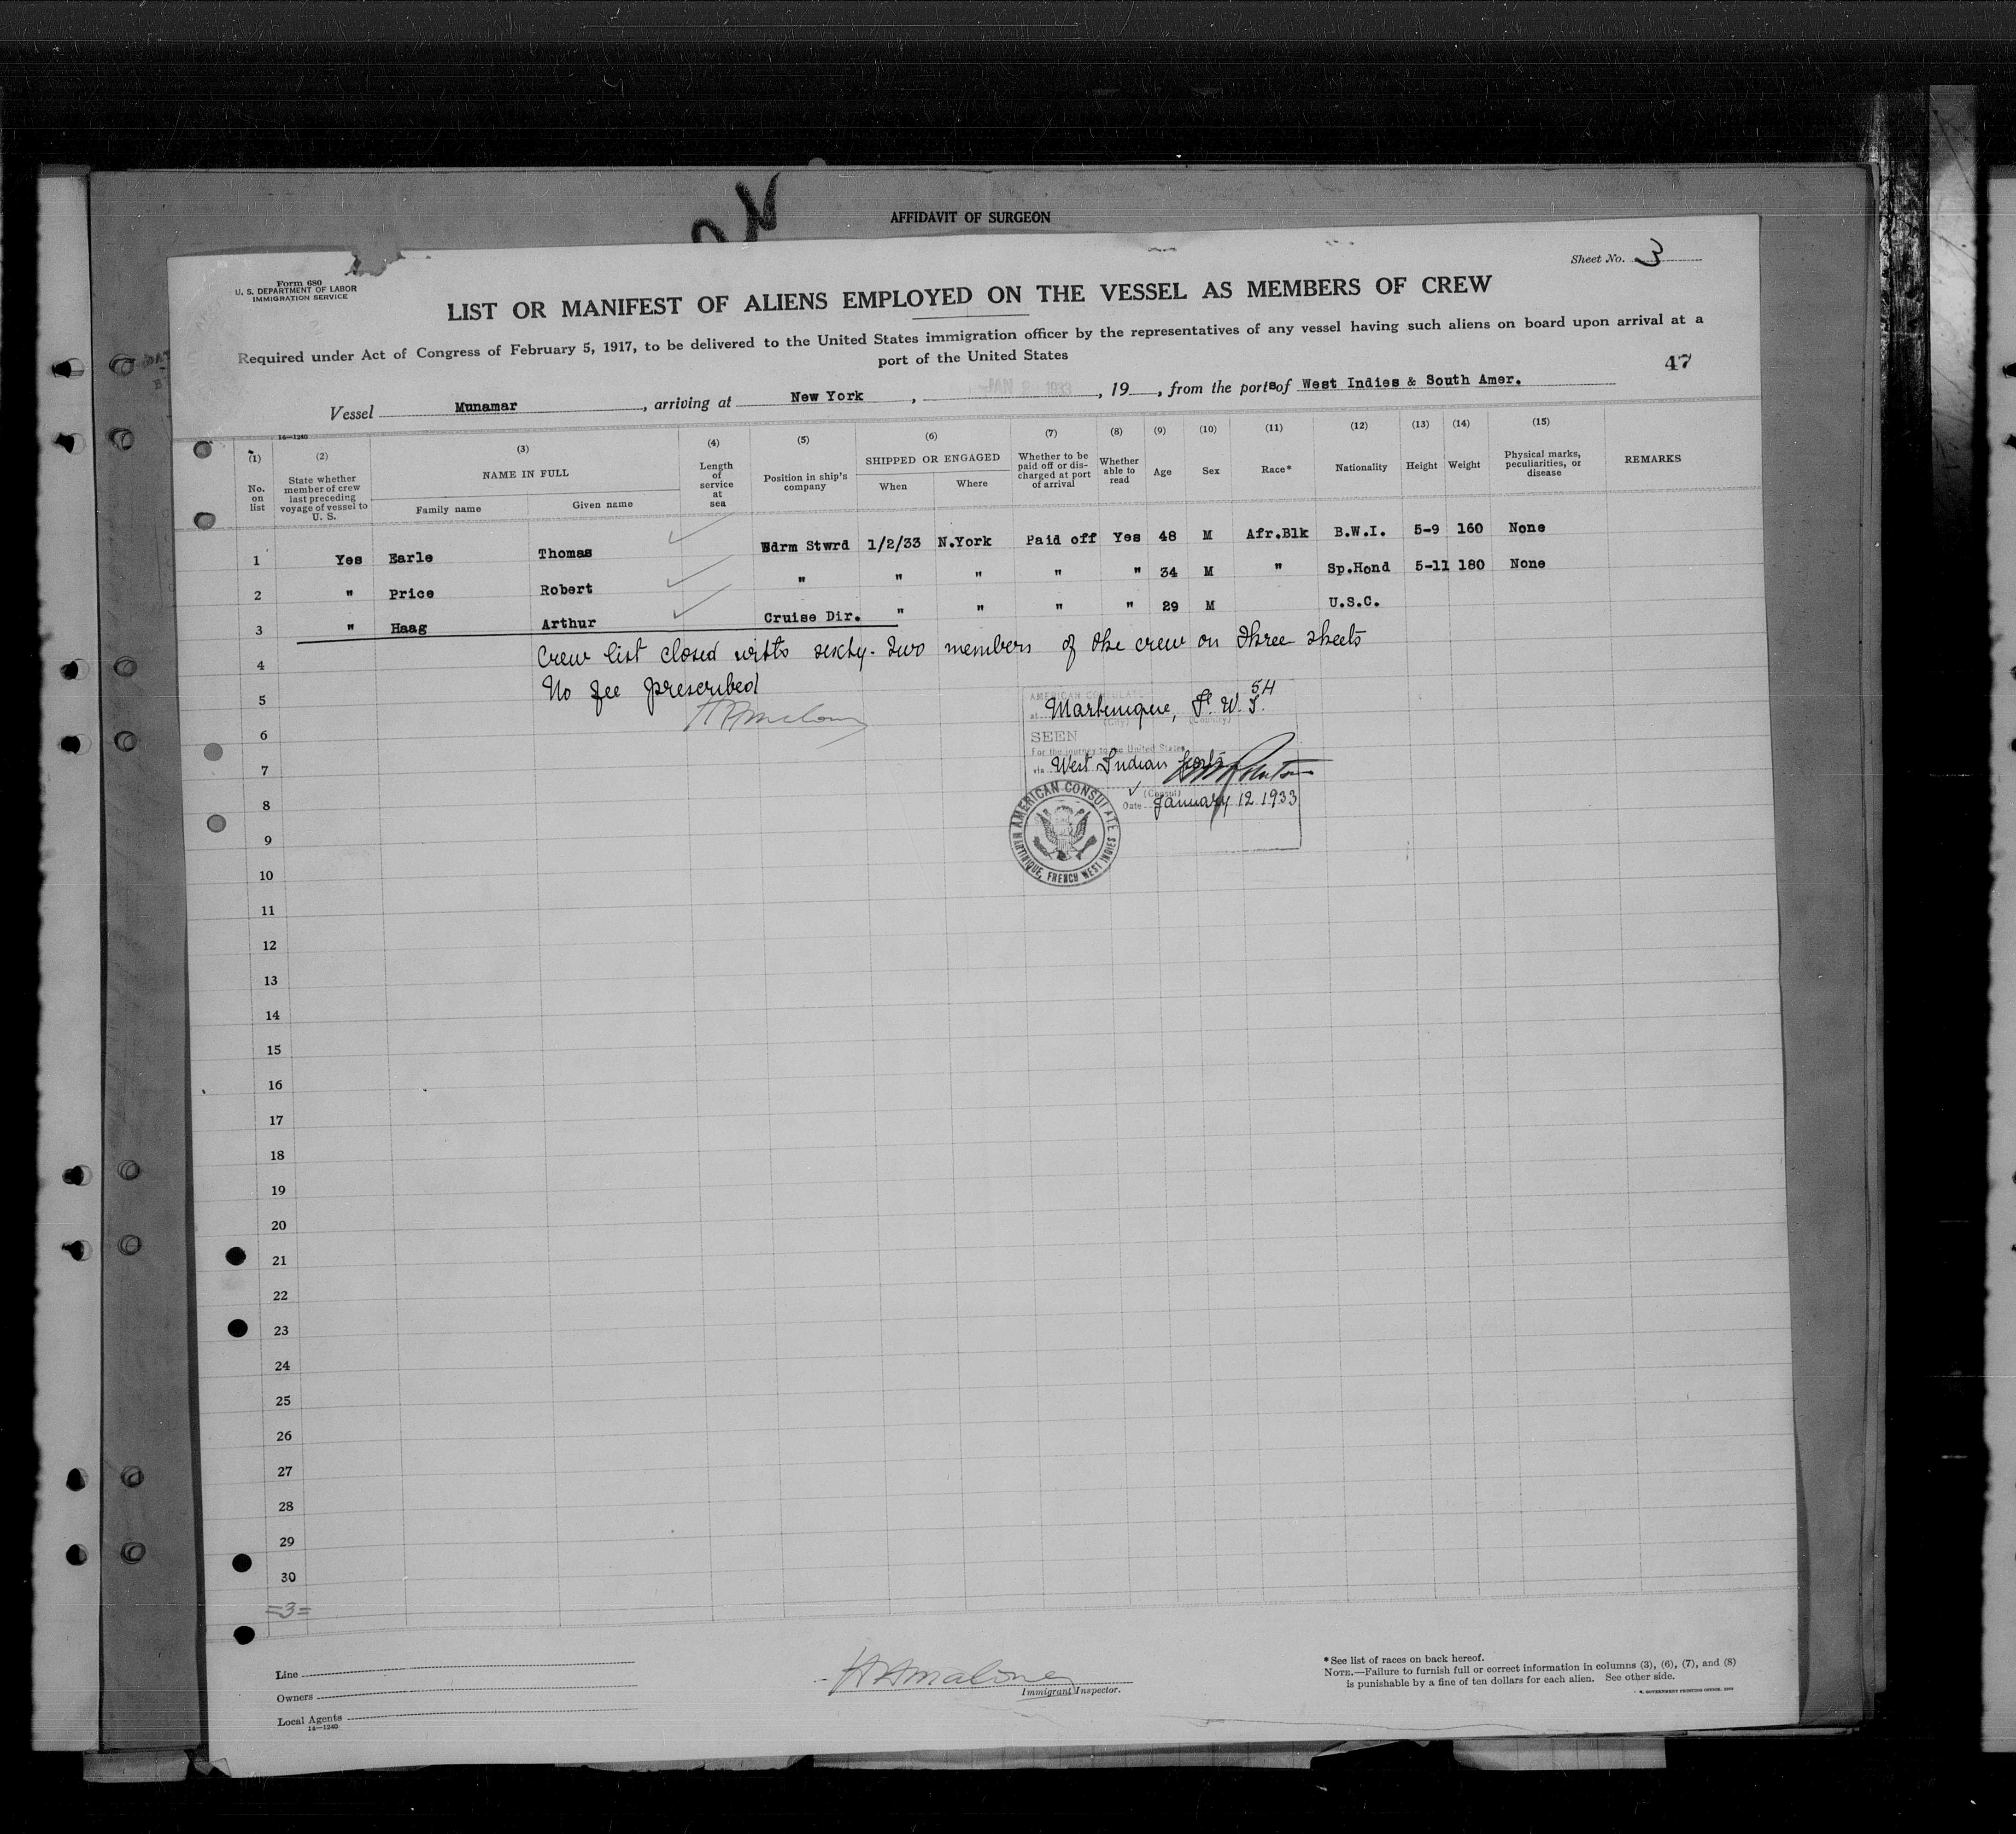 AFFIDAVIT OF SURGEON
Sheet No. 3
Form 680
U. S. DEPARTMENT OF LABOR
IMMIGRATION SERVICE
LIST OR MANIFEST OF ALIENS EMPLOYED ON THE VESSEL AS MEMBERS OF CREW
Required under Act of Congress of February 5, 1917, to be delivered to the United States immigration officer by the representatives of any vessel having such aliens on board upon arrival at a
port of the United States
47
Vessel Munamar, arriving at New York, JAN 1933, 19, from the ports of West Indies & South Amer.
14—1240
(1) No. on list
(2) State whether member of crew last preceding voyage of vessel to U. S.
(3) NAME IN FULL
Family name Given name
(4) Length of service at sea
(5) Position in ship's company
(6) SHIPPED OR ENGAGED
When Where
(7) Whether to be paid off or discharged at port of arrival
(8) Whether able to read
(9) Age
(10) Sex
(11) Race*
(12) Nationality
(13) Height
(14) Weight
(15) Physical marks, peculiarities, or disease
REMARKS
1 Yes Earle Thomas Bdrm Stwrd 1/2/33 N.York Paid off Yes 48 M Afr.Blk B.W.I. 5-9 160 None
2 " Price Robert " " " " " 34 M " Sp.Hond 5-11 180 None
3 " Haag Arthur Cruise Dir. " " " " 29 M U.S.C.
4 Crew list closed with sixty-two members of the crew on three sheets
5 No fee prescribed
HAMalone
AMERICAN CONSULATE
54
at Martinique, F. W. I.
(City) (Country)
SEEN
For the journey to the United States
via West Indian ports
(Consul)
Date January 12 1933
AMERICAN CONSULATE
MARTINIQUE, FRENCH WEST INDIES
6
7
8
9
10
11
12
13
14
15
16
17
18
19
20
21
22
23
24
25
26
27
28
29
30
=3=
Line
Owners
Local Agents
14—1240
HAMalone
Immigrant Inspector.
*See list of races on back hereof.
NOTE.—Failure to furnish full or correct information in columns (3), (6), (7), and (8)
is punishable by a fine of ten dollars for each alien. See other side.